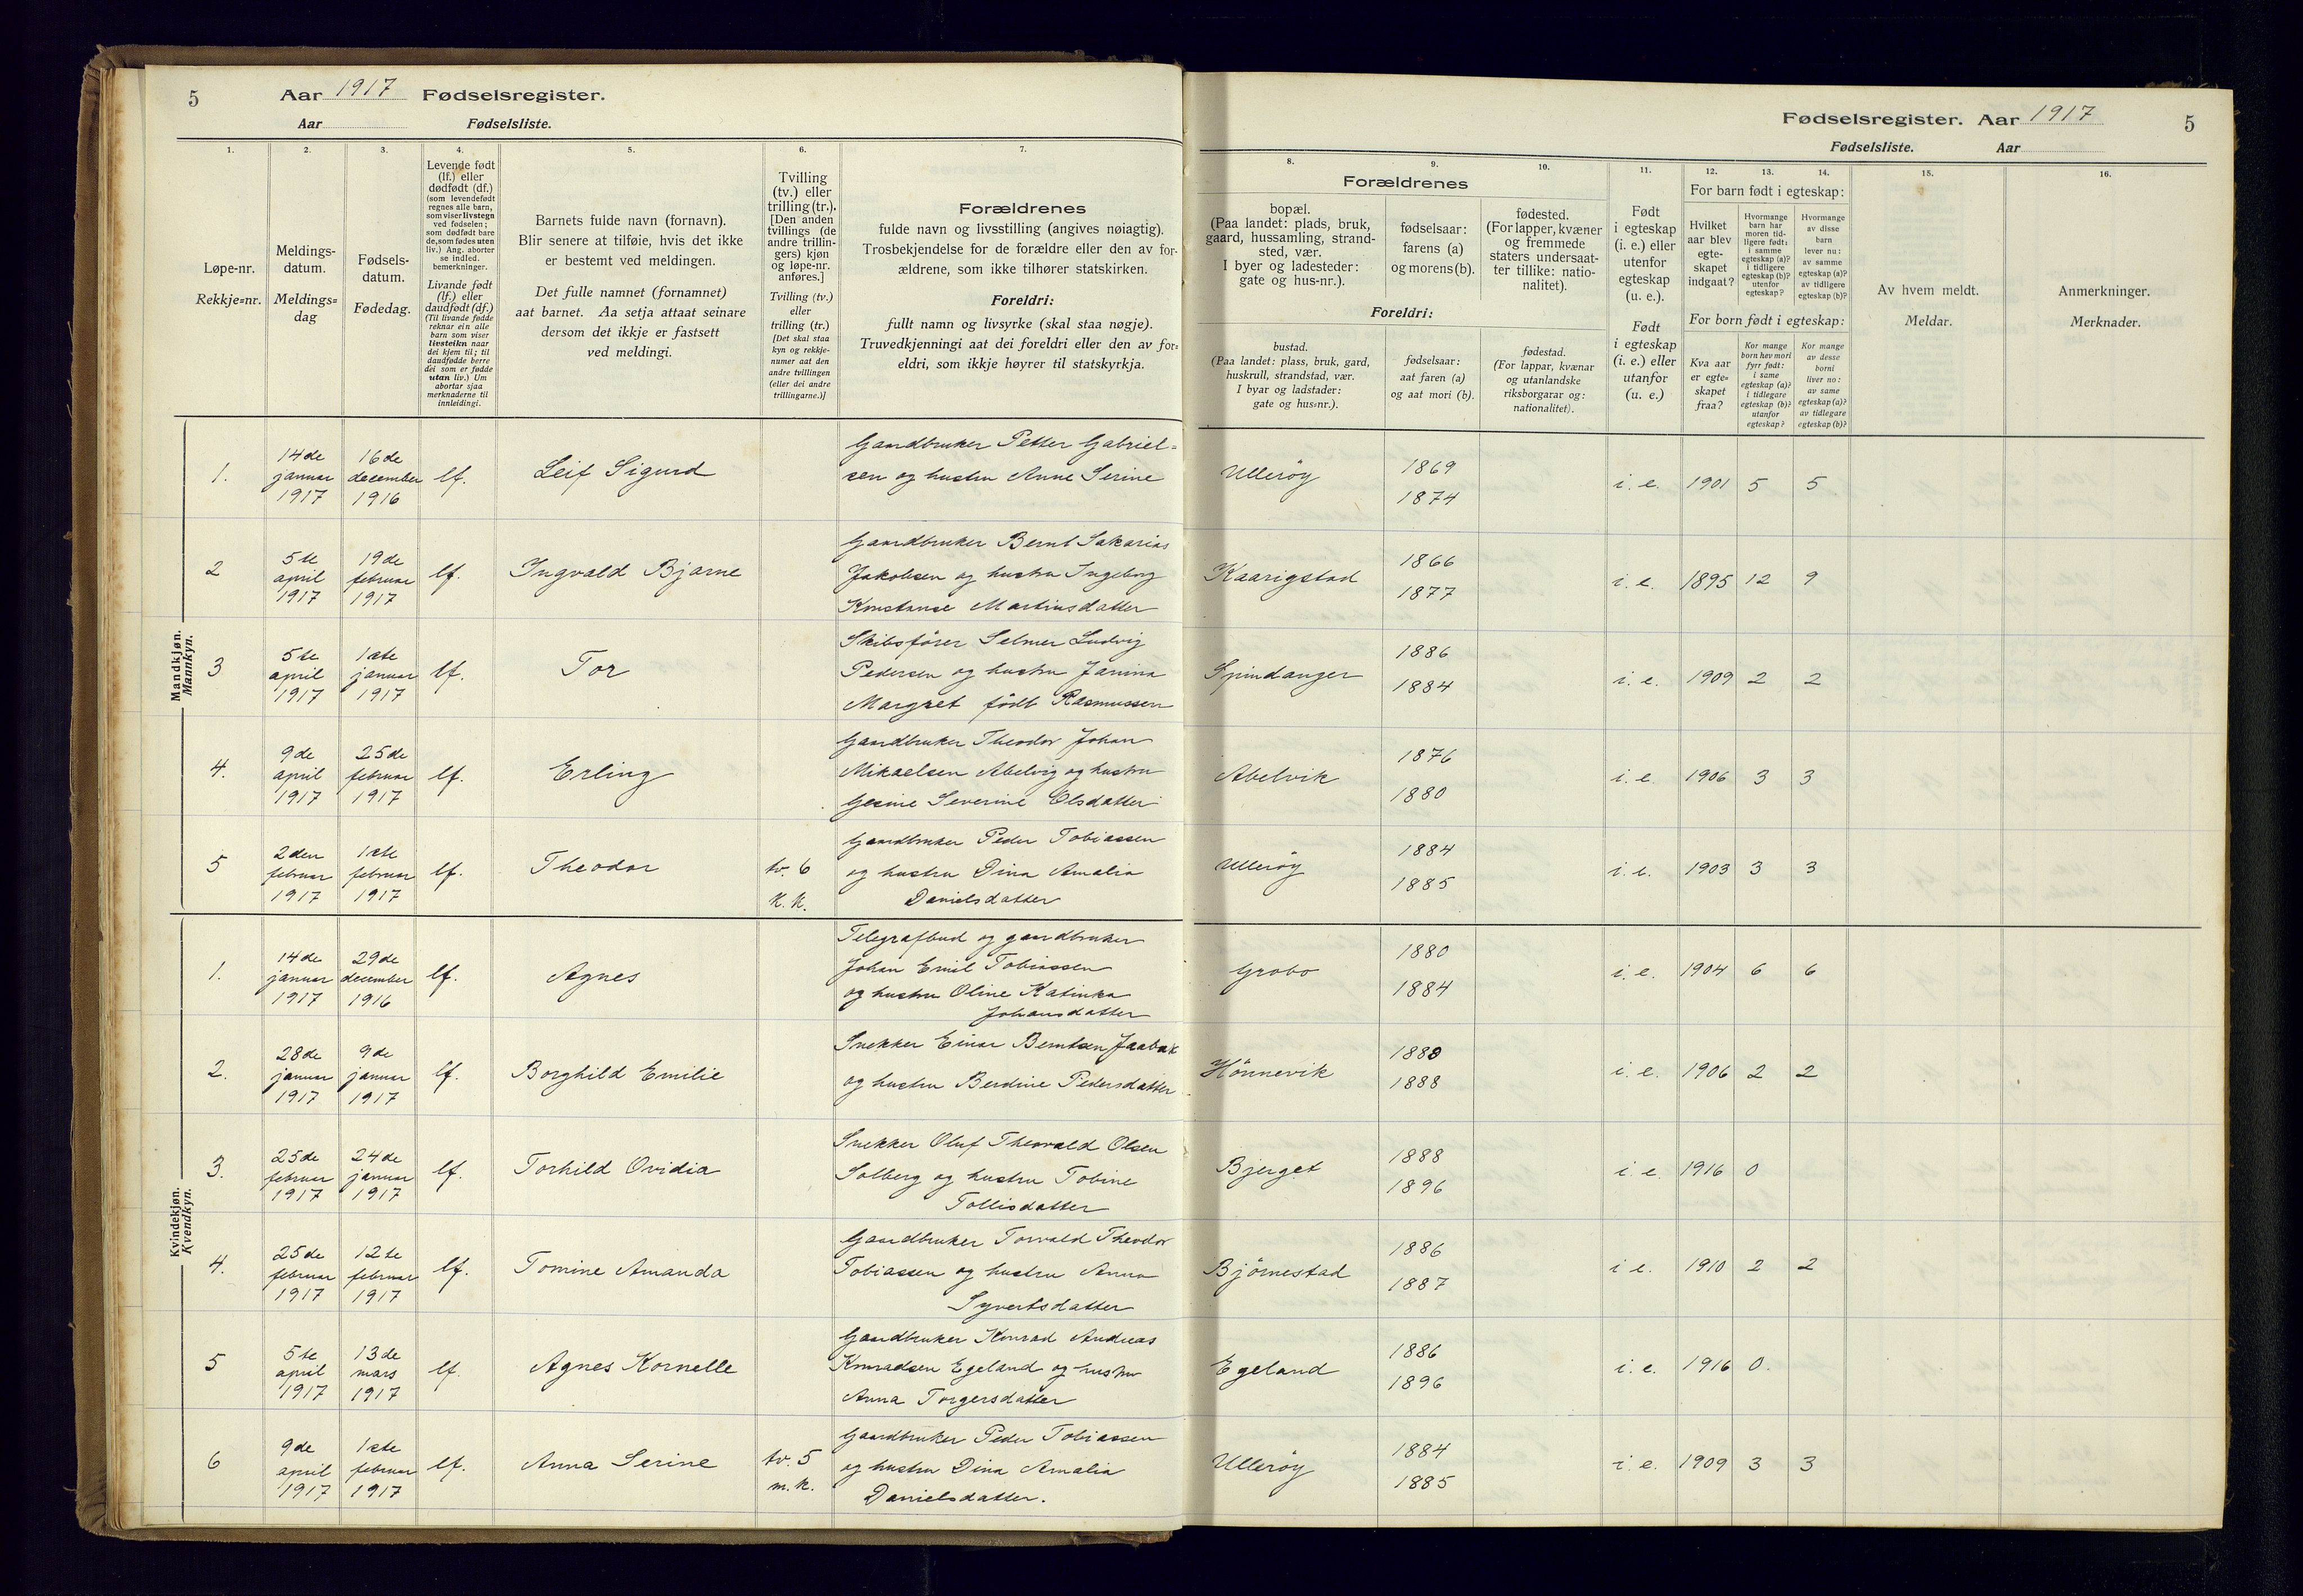 5
Aar 1917 Fødselsregister.
Aar Fødselsliste.
Fødselsregister. Aar 1917
5
Fødselsliste. Aar
1.
2.
3.
4.
5.
6.
7.
8.
9.
10.
11.
12.
13.
14.
15.
16.
Løpe-nr.
Rekkje=nr.
Meldings-
datum.
Meldings=
dag
Fødsels-
datum.
Fødedag.
Levende født
(lf.) eller
dødfødt (df.)
(som levendefødt
regnes alle barn,
som viser livstegn
ved fødselen;
som dødfødt bare
de, som fødes uten
liv.) Ang. aborter
se indled.
bemerkninger.
Livande født
(lf.) eller
daudfødt (df.)
(Til livande fødde
reknar ein alle
barn som viser
livsteikn naar
dei kjem til; til
daudfødde berre
dei som er fødde
utan liv.) Um
abortar sjaa
merknaderne til
innleidingi.
Barnets fulde navn (fornavn).
Blir senere at tilføie, hvis det ikke
er bestemt ved meldingen.
Det fulle namnet (fornamnet)
aat barnet. Aa setja attaat seinare
dersom det ikkje er fastsett
ved meldingi.
Tvilling
(tv.) eller
trilling (tr.).
[Den anden
tvillings (de
andre trillin-
gers) kjøn
og løpe-nr.
anføres.]
Tvilling (tv.)
eller
trilling (tr.)
[Det skal staa
kyn og rekkje-
numer aat den
andre tvillingen
(eller dei andre
trillingarne.)]
Forældrenes
fulde navn og livsstilling (angives nøiagtig).
Trosbekjendelse for de forældre eller den av for-
ældrene, som ikke tilhører statskirken.
Foreldri:
fullt namn og livsyrke (skal staa nøgje).
Truvedkjenningi aat dei foreldri eller den av for=
eldri, som ikkje høyrer til statskyrkja.
Forældrenes
bopæl.
(Paa landet: plads, bruk,
gaard, hussamling, strand-
sted, vær.
I byer og ladesteder:
gate og hus-nr.).
fødselsaar:
farens (a)
og morens (b).
fødested.
(For lapper, kvæner
og fremmede
staters undersaat-
ter tillike: natio-
nalitet).
Foreldri:
bustad.
(Paa landet: plass, bruk, gard,
huskrull, strandstad, vær.
I byar og ladstader:
gate og hus=nr.).
fødselsaar:
aat faren (a)
og aat mori (b).
fødestad.
(For lappar, kvænar
og utanlandske
riksborgarar og:
nationalitet).
Født
i egteskap
(i. e.) eller
utenfor
egteskap
(u. e.).
Født
i egteskap
(i. e.) eller
utanfor
(u. e.)
For barn født i egteskap:
Hvilket
aar blev
egte-
skapet
indgaat?
Hvormange
barn har
moren tid-
ligere født:
i samme
egteskap (a)?
i tidligere
egteskap (b)?
utenfor
egteskap?
Hvormange
av disse
barn
lever nu:
av samme
egteskap (a)?
av tidligere
egteskap (b)?
For born født i egteskap:
Kva aar
er egte=
skapet
fraa?
Kor mange
born hev mori
fyrr født:
i same
egteskap (a)?
i tidlegare
egteskap (b)?
utanfor
egteskap?
Kor mange
av desse
borni
liver no:
av same
egteskap (a)?
av tidlegare
egteskap (b)?
Av hvem meldt.
Meldar.
Anmerkninger.
Merknader.
Mandkjøn.
Mannkyn.
1. 14de januar 1917 16de december 1916 lf. Leif Sigurd
Gaardbruker Petter Gabriel=
sen og hustru Anne Serine
Ullerøy 1869 1874 i. e. 1901 5 5
2 5te april 1917 19de februar 1917 lf. Ingvald Bjarne
Gaardbruker Bernt Sakarias
Jakobsen og hustru Ingeborg
Konstanse Martinsdatter
Kaarigstad 1866 1877 i. e. 1895 12 9
3 5te april 1917 1ste januar 1917 lf. Tor
Skibsfører Selmer Ludvig
Pedersen og hustru Janina
Margret født Rasmussen
Spindanger 1886 1884 i. e. 1909 2 2
4. 9de april 1917 25de februar 1917 lf. Erling
Gaardbruker Theodor Johan
Mikaelsen Abelvig og hustru
Gesine Severine Olsdatter
Abelvik 1876 1880 i. e. 1906 3 3
5 2den februar 1917 1ste februar 1917 lf. Theodor tv. 6 k. k.
Gaardbruker Peder Tobiassen
og hustru Dina Amalia
Danielsdatter
Ullerøy 1884 1885 i. e. 1903 3 3
Kvindekjøn.
Kvendkyn.
1. 14de januar 1917 29de december 1916 lf. Agnes
Telegrafbud og gaardbruker
Johan Emil Tobiassen
og hustru Oline Katinka
Johansdatter
Grobo 1880 1884 i. e. 1904 6 6
2. 28de januar 1917 9de januar 1917 lf. Borghild Emilie
Snekker Einar Berntsen Jaabæk
og hustru Berdine Pedersdatter
Hönnevik 1880 1888 i. e. 1906 2 2
3. 25de februar 1917 24de januar 1917 lf. Torhild Ovidia
Snekker Oluf Theovald Olsen
Solberg og hustru Tobine
Tollisdatter
Bjerget 1888 1896 i e. 1916 0
4. 25de februar 1917 12te februar 1917 lf. Tomine Amanda
Gaardbruker Torvald Theodor
Tobiassen og hustru Anna
Syvertsdatter
Björnestad 1886 1887 i e. 1910 2 2
5 5te april 1917 13de mars 1917 lf. Agnes Kornelle
Gaardbruker Konrad Andreas
Konradsen Egeland og hustru
Anna Torgersdatter
Egeland 1886 1896 i. e. 1916 0.
6 9de april 1917 1ste februar 1917 lf. Anna Serine tv. 5 m. k.
Gaardbruker Peder Tobiassen
og hustru Dina Amalia
Danielsdatter.
Ullerøy 1884 1885 i. e. 1909 3 3